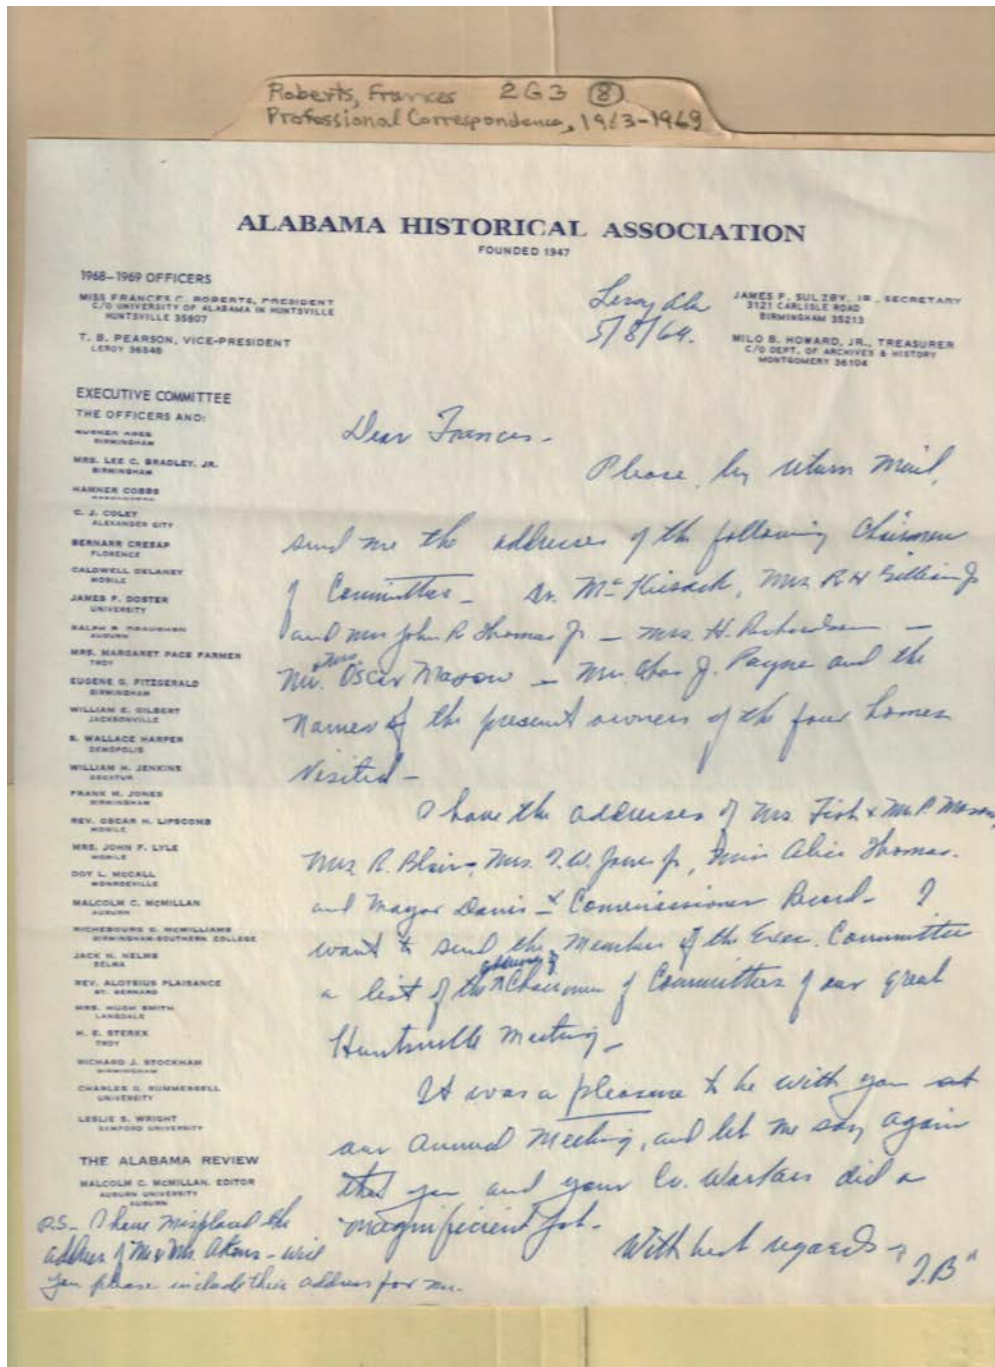 Roberts, Frances 2G3 (8)
Professional Correspondence, 1963-1969
ALABAMA HISTORICAL ASSOCIATION
FOUNDED 1947
1968-1969 OFFICERS
MISS FRANCES C. ROBERTS, PRESIDENT
C/O UNIVERSITY OF ALABAMA IN HUNTSVILLE
HUNTSVILLE 35807
T. B. PEARSON, VICE-PRESIDENT
LEROY 36548
JAMES F. SULZBY, JR., SECRETARY
3121 CARLISLE ROAD
BIRMINGHAM 35213
MILO B. HOWARD, JR., TREASURER
C/O DEPT. OF ARCHIVES & HISTORY
MONTGOMERY 36104
EXECUTIVE COMMITTEE
THE OFFICERS AND:
BIRMINGHAM
MRS. LEE C. BRADLEY, JR.
BIRMINGHAM
HAMNER COBBS
C. J. COLEY
ALEXANDER CITY
BERNARR CRESAP
FLORENCE
CALDWELL DELANEY
MOBILE
JAMES F. DOSTER
UNIVERSITY
RALPH B. DRAUGHON
AUBURN
MRS. MARGARET PACE FARMER
TROY
EUGENE G. FITZGERALD
BIRMINGHAM
WILLIAM E. GILBERT
JACKSONVILLE
S. WALLACE HARPER
DEMOPOLIS
WILLIAM H. JENKINS
DECATUR
FRANK M. JONES
BIRMINGHAM
REV. OSCAR H. LIPSCOMB
MOBILE
MRS. JOHN F. LYLE
MOBILE
DOY L. McCALL
MONROEVILLE
MALCOLM C. McMILLAN
AUBURN
RICHEBOURG G. McWILLIAMS
BIRMINGHAM-SOUTHERN COLLEGE
JACK N. NELMS
SELMA
REV. ALOYSIUS PLAISANCE
ST. BERNARD
MRS. HUGH SMITH
LANGDALE
H. E. STERKX
TROY
RICHARD J. STOCKHAM
BIRMINGHAM
CHARLES G. SUMMERSELL
UNIVERSITY
LESLIE S. WRIGHT
SAMFORD UNIVERSITY
THE ALABAMA REVIEW
MALCOLM C. McMILLAN, EDITOR
AUBURN UNIVERSITY
AUBURN
Leroy Ala
5/8/69.
Dear Frances -
Please, by return mail,
send me the addresses of the following Chairmen
of Committees - Dr. Mc Mrs R H Gilliam Jr
and Mrs John R Thomas Jr - Mrs. H. Richardson -
Mr. & Mrs Oscar Mason - Mrs. Chas J. Payne and the
names of the present owners of the four homes
visited -
I have the addresses of Mrs Fisk & Mrs P. Mason,
Mrs R. Blair, Mrs. T. W. Jones Jr, Miss Alice Thomas.
and Mayor Davis & Commissioner Record - I
want to send the members of the Exec. Committee
a list of the Chairmen of Committees of our great
Huntsville Meeting -
It was a pleasure to be with you at
our annual meeting, and let me say again
that you and your Co. Workers did a
magnificient job -
With best regards -
"T.B"
P.S - I have misplaced the
address of Mr & Mrs. - will
you please include their address for me.